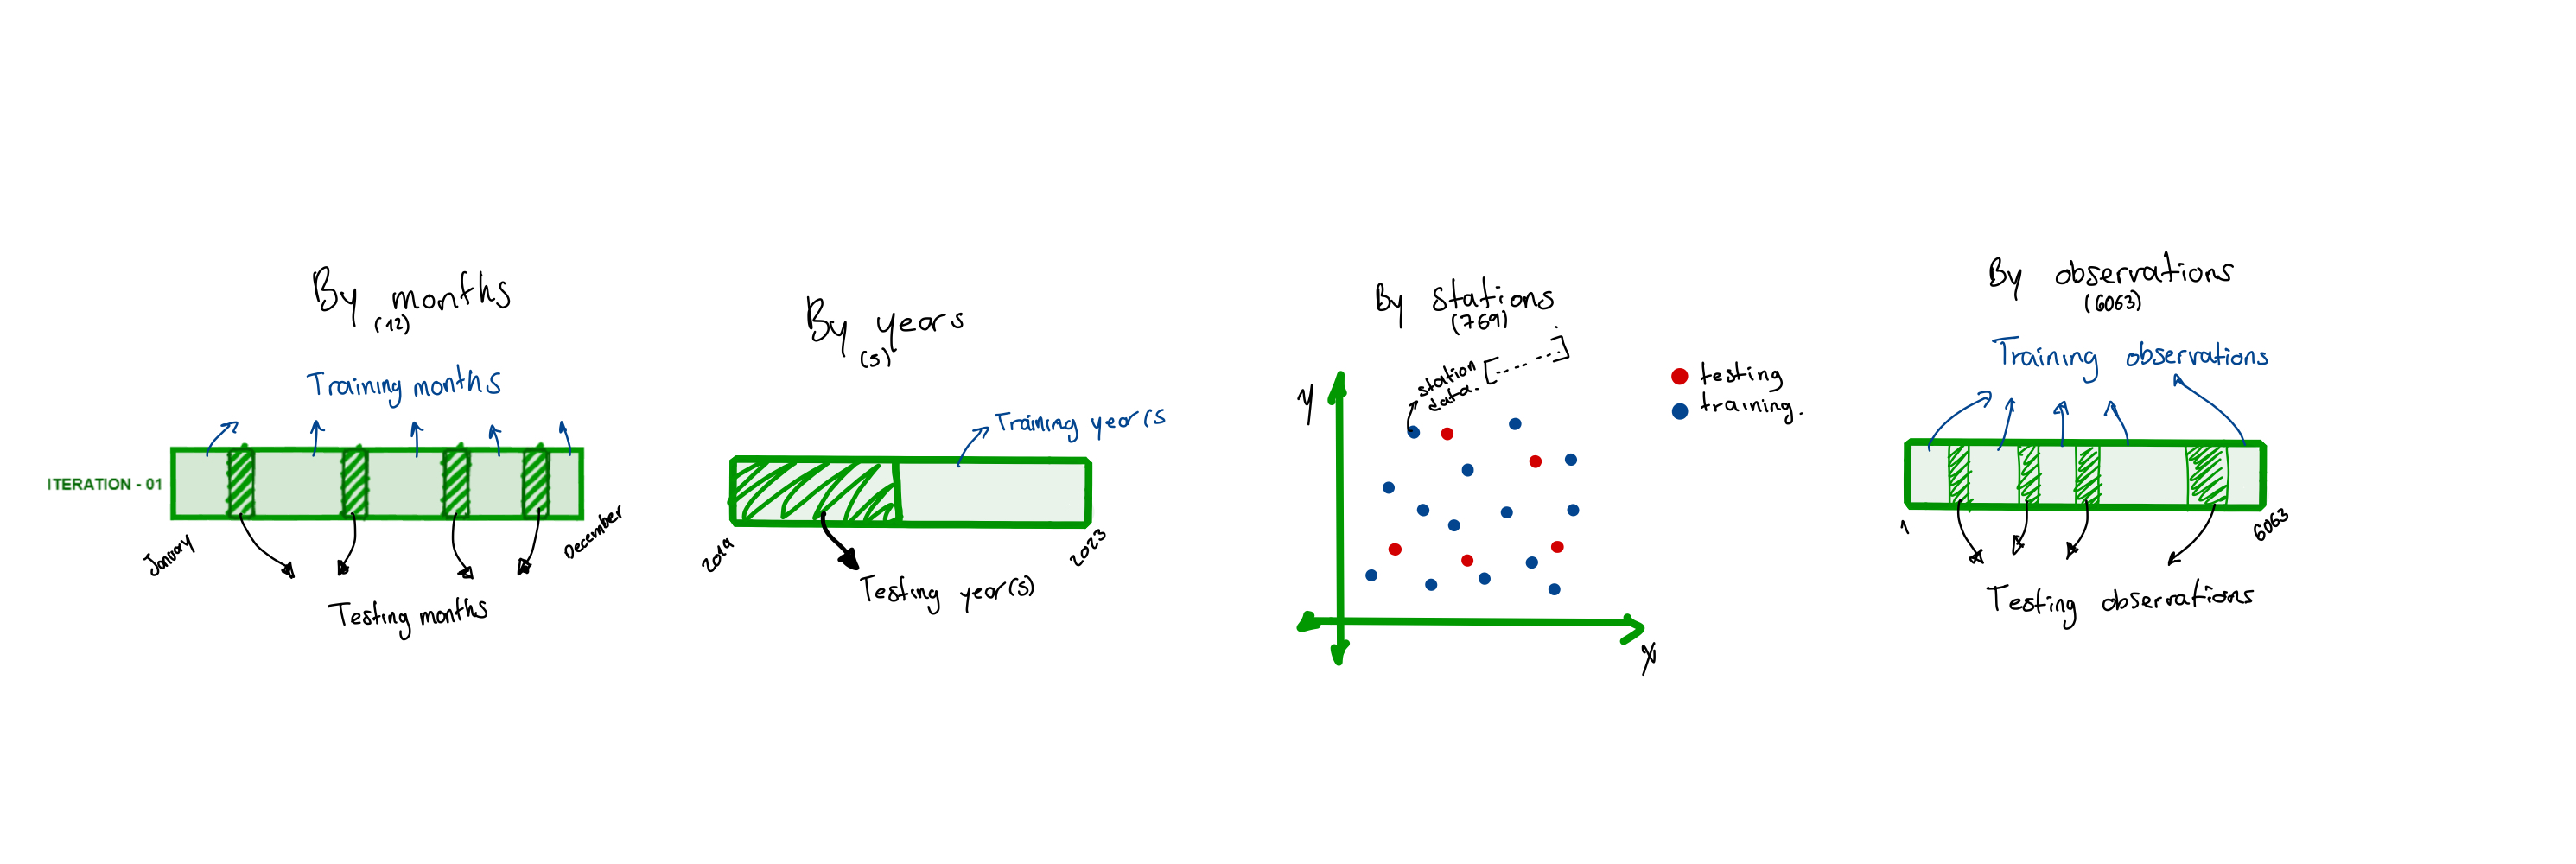 By months
(12)
Training months
ITERATION - 01
January
December
Testing months
By years
(5)
Training year(s
2019
2023
Testing year(s)
By stations
(769)
station
data.
y
x
testing
training.
By observations
(6063)
Training observations
1
6063
Testing observations